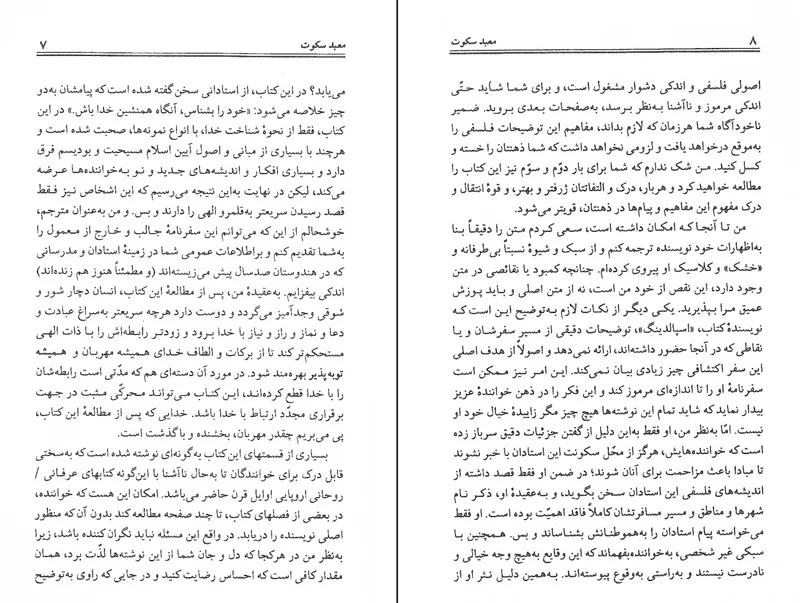 معبد سکوت ۷
می‌یابد؟ در این کتاب، از استادانی سخن گفته شده است که پیامشان به‌دو
چیز خلاصه می‌شود: «خود را بشناس، آنگاه همنشین خدا باش.» در این
کتاب، فقط از نحوهٔ شناخت خدا، با انواع نمونه‌ها، صحبت شده است و
هرچند با بسیاری از مبانی و اصول آیین اسلام مسیحیت و بودیسم فرق
دارد و بسیاری افکار و اندیشه‌های جدید و نو به‌خواننده‌ها عرضه
می‌کند، لیکن در نهایت به‌این نتیجه می‌رسیم که این اشخاص نیز فقط
قصد رسیدن سریعتر به‌قلمرو الهی را دارند و بس. و من به‌عنوان مترجم،
خوشحالم از این که می‌توانم این سفرنامهٔ جالب و خارج از معمول را
به‌شما تقدیم کنم و براطلاعات عمومی شما در زمینهٔ استادان و مدرسانی
که در هندوستان صدسال پیش می‌زیسته‌اند (و مطمئناً هنوز هم زنده‌اند)
اندکی بیفزایم. به‌عقیدهٔ من، پس از مطالعهٔ این کتاب، انسان دچار شور و
شوقی وجدآمیز می‌گردد و دوست دارد هرچه سریعتر به‌سراغ عبادت و
دعا و نماز و راز و نیاز با خدا برود و زودتر رابطه‌اش را با ذات الهی
مستحکم‌تر کند تا از برکات و الطاف خدای همیشه مهربان و همیشه
توبه‌پذیر بهره‌مند شود. در مورد آن دسته‌ای هم که مدّتی است رابطه‌شان
را با خدا قطع کرده‌اند، این کتاب می‌تواند محرکّی مثبت در جهت
برقراری مجدّد ارتباط با خدا باشد. خدایی که پس از مطالعهٔ این کتاب،
پی می‌بریم چقدر مهربان، بخشنده و باگذشت است.
بسیاری از قسمتهای این کتاب به‌گونه‌ای نوشته شده است که به‌سختی
قابل درک برای خوانندگان تا به‌حال ناآشنا با این‌گونه کتابهای عرفانی /
روحانی اروپایی اوایل قرن حاضر می‌باشد. امکان این هست که خواننده،
در بعضی از فصلهای کتاب، تا چند صفحه مطالعه کند بدون آن که منظور
اصلی نویسنده را دریابد. در واقع این مسئله نباید نگران کننده باشد، زیرا
به‌نظر من در هرکجا که دل و جان شما از این نوشته‌ها لذّت برد، همان
مقدار کافی است که احساس رضایت کنید و در جایی که راوی به‌توضیح
۸ معبد سکوت
اصولی فلسفی و اندکی دشوار مشغول است، و برای شما شاید حتّی
اندکی مرموز و ناآشنا به‌نظر برسد، به‌صفحات بعدی بروید. ضمیر
ناخودآگاه شما هرزمان که لازم بداند، مفاهیم این توضیحات فلسفی را
به‌موقع درخواهد یافت و لزومی نخواهد داشت که شما ذهنتان را خسته و
کسل کنید. من شک ندارم که شما برای بار دوّم و سوّم نیز این کتاب را
مطالعه خواهید کرد و هربار، درک و التفاتتان ژرفتر و بهتر، و قوهٔ انتقال و
درک مفهوم این مفاهیم و پیام‌ها در ذهنتان، قویتر می‌شود.
من تا آنجا که امکان داشته است، سعی کردم متن را دقیقاً بنا
به‌اظهارات خود نویسنده ترجمه کنم و از سبک و شیوهٔ نسبتاً بی‌طرفانه و
«خشک» و کلاسیک او پیروی کرده‌ام. چنانچه کمبود یا نقائصی در متن
وجود دارد، این نقص از خود من است، نه از متن اصلی و باید پوزش
عمیق مرا بپذیرید. یکی دیگر از نکات لازم به‌توضیح این است که
نویسندهٔ کتاب، «اسپالدینگ»، توضیحات دقیقی از مسیر سفرشان و یا
نقاطی که در آنجا حضور داشته‌اند، ارائه نمی‌دهد و اصولاً از هدف اصلی
این سفر اکتشافی چیز زیادی بیان نمی‌کند. این امر نیز ممکن است
سفرنامهٔ او را تا اندازه‌ای مرموز کند و این فکر را در ذهن خوانندهٔ عزیز
بیدار نماید که شاید تمام این نوشته‌ها هیچ چیز مگر زاییدهٔ خیال خود او
نیست. امّا به‌نظر من، او فقط به‌این دلیل از گفتن جزئیات دقیق سرباز زده
است که خواننده‌هایش، هرگز از محّل سکونت این استادان با خبر نشوند
تا مبادا باعث مزاحمت برای آنان شوند؛ در ضمن او فقط قصد داشته از
اندیشه‌های فلسفی این استادان سخن بگوید، و به‌عقیدهٔ او، ذکر نام
شهرها و مناطق و مسیر مسافرتشان کاملاً فاقد اهمیّت بوده است. او فقط
می‌خواسته پیام استادان را به‌هموطنانش بشناساند و بس. همچنین با
سبکی غیر شخصی، به‌خواننده‌بفهماند که این وقایع به‌هیچ وجه خیالی و
نادرست نیستند و به‌راستی به‌وقوع پیوسته‌اند. به‌همین دلیل نثر او از